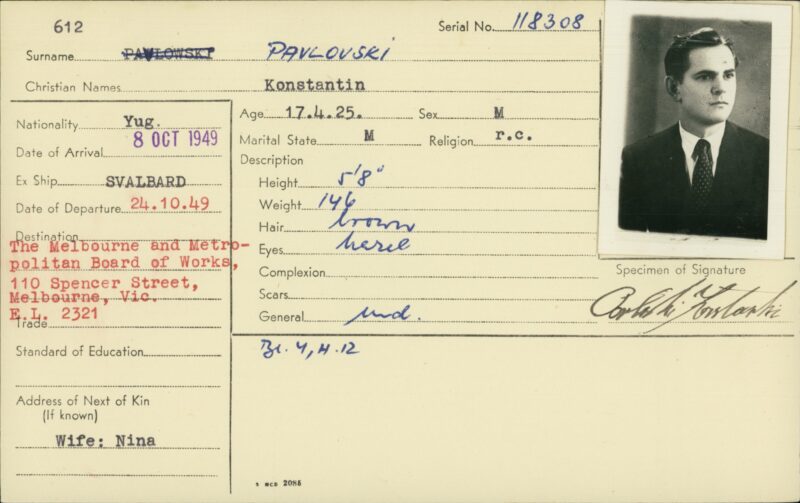 612
Serial No. 118308
Surname PAWLOWSKI PAVLOVSKI
Christian Names Konstantin
Nationality Yug.
Date of Arrival 8 OCT 1949
Ex Ship SVALBARD
Date of Departure 24.10.49
Destination
The Melbourne and Metro-
politan Board of Works,
110 Spencer Street,
Melbourne, Vic.
E.L. 2321
Trade
Standard of Education
Address of Next of Kin
(If known)
Wife: Nina
Age 17.4.25. Sex M
Marital State M Religion r.c.
Description
Height 5'8"
Weight 146
Hair brown
Eyes hazel
Complexion
Scars
General und.
Specimen of Signature
Bl. 4, H. 12
2085